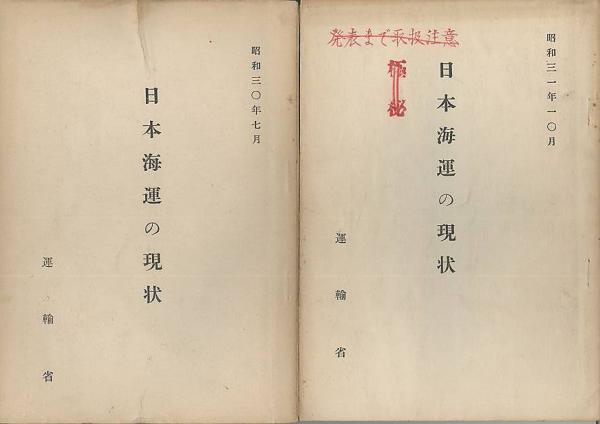 昭和三〇年七月
日本海運の現状
運輸省
発表まで取扱注意
極秘
昭和三一年一〇月
日本海運の現状
運輸省